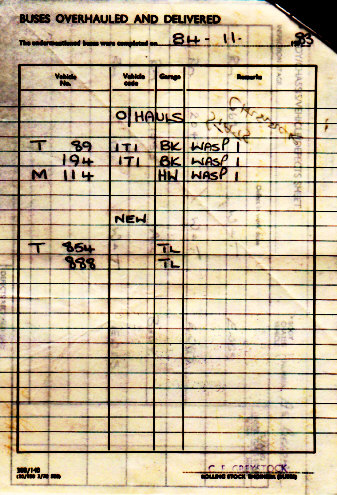 BUSES OVERHAULED AND DELIVERED
The undermentioned buses were completed on 84 - 11 - 1983
Vehicle No. Vehicle code Garage Remarks
O/HAULS
T 89 1T1 BK WASP 1
194 1T1 BK WASP 1
M 114 HW WASP 1
NEW
T 854 TL
888 TL
C F GREYSTOCK
ROLLING STOCK ENGINEER (BUSES)